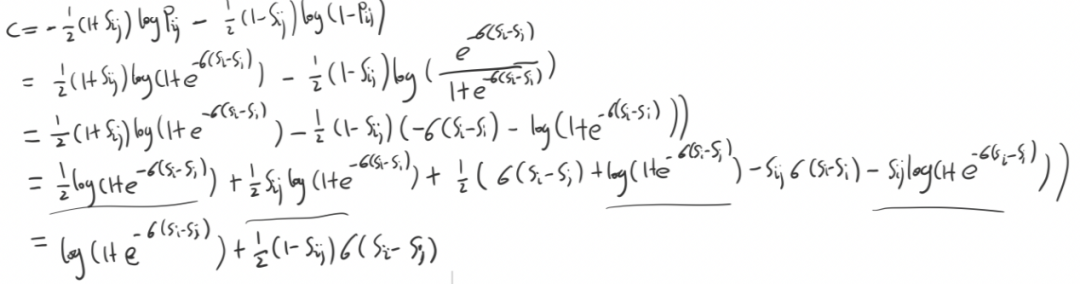 C = -½(1+Sij) log Pij - ½(1-Sij) log(1-Pij)
= ½(1+Sij) log(1+e^{-6(Si-Sj)}) - ½(1-Sij) log(e^{-6(Si-Sj)} / (1+e^{-6(Si-Sj)}))
= ½(1+Sij) log(1+e^{-6(Si-Sj)}) - ½(1-Sij)(-6(Si-Sj) - log(1+e^{-6(Si-Sj)}))
= ½log(1+e^{-6(Si-Sj)}) + ½Sij log(1+e^{-6(Si-Sj)}) + ½(6(Si-Sj) + log(1+e^{-6(Si-Sj)}) - Sij 6(Si-Sj) - Sij log(1+e^{-6(Si-Sj)}))
= log(1+e^{-6(Si-Sj)}) + ½(1-Sij)6(Si-Sj)